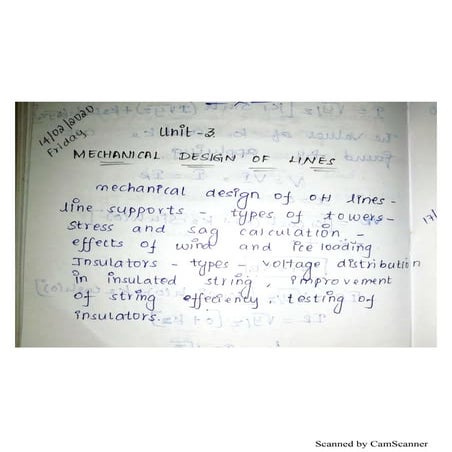 14/02/2020
Friday
Unit-3
MECHANICAL DESIGN OF LINES
mechanical design of OH lines-
line supports - types of towers-
stress and sag calculation -
effects of wind and ice loading
Insulators - types - voltage distribution
in insulated string, improvement
of string effeciency, testing of
insulators.
17/
Scanned by CamScanner